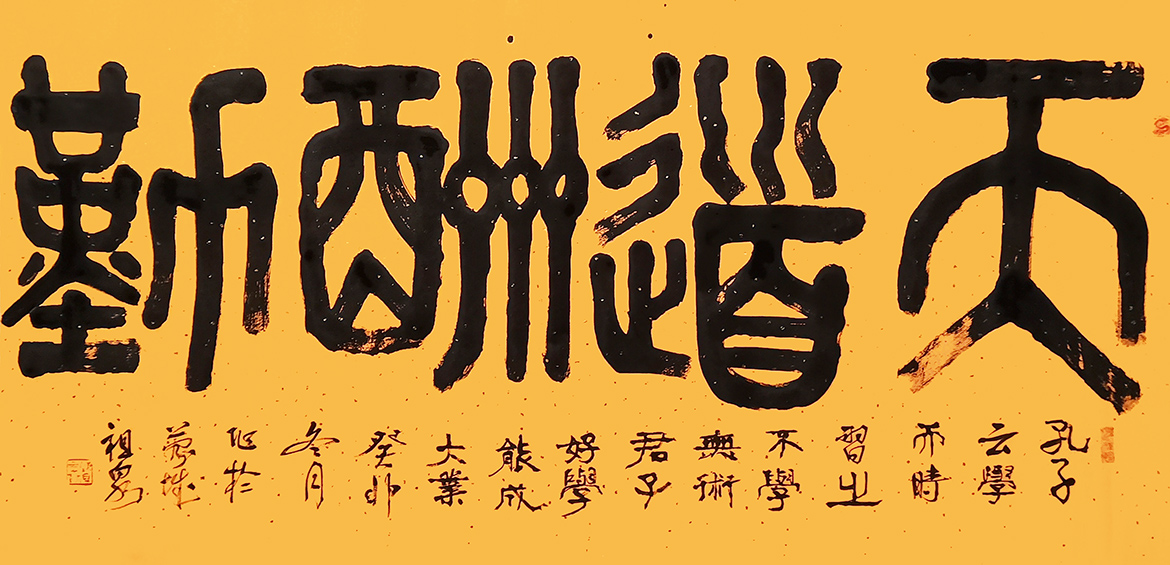 天道酬勤
孔子
云學
而時
習之
不學
無術
君子
好學
能成
大業
癸卯
冬月
作於
城
祖